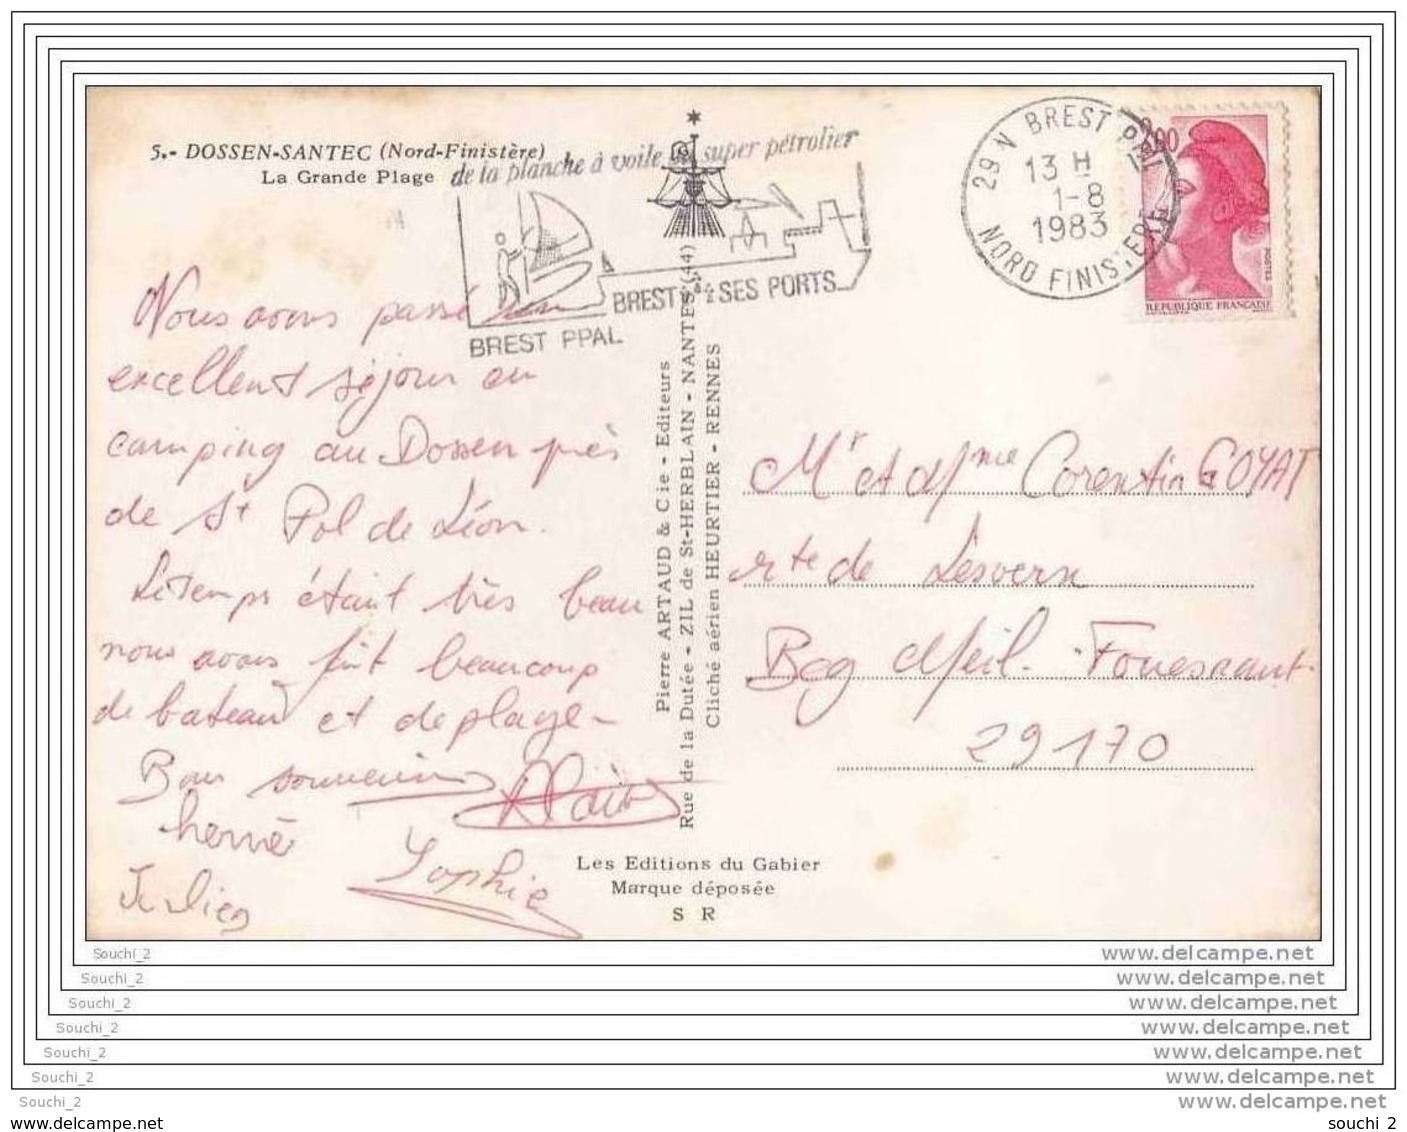 5.- DOSSEN-SANTEC (Nord-Finistère)
La Grande Plage
de la planche à voile au super pétrolier
BREST & SES PORTS
BREST PPAL
29 N BREST PPAL
13 H
1-8
1983
NORD FINISTERE
2,00
POSTES
REPUBLIQUE FRANÇAISE
Nous avons passé un
excellent séjour au
camping au Dossen près
de St Pol de Léon.
Le temps étant très beau
nous avons fait beaucoup
de bateau et de plage-
Bons souvenirs Alain
hervé
Sophie
Julien
Pierre ARTAUD & Cie - Editeurs
Rue de la Dutée - ZIL de St-HERBLAIN - NANTES (44)
Cliché aérien HEURTIER - RENNES
Mr et Mme Corentin GOYAT
rte de Lesvern
Beg Meil - Fouesnant
29170
Les Editions du Gabier
Marque déposée
S R
Souchi_2 www.delcampe.net
Souchi_2 www.delcampe.net
Souchi_2 www.delcampe.net
Souchi_2 www.delcampe.net
Souchi_2 www.delcampe.net
Souchi_2 www.delcampe.net
Souchi_2 www.delcampe.net
www.delcampe.net souchi_2